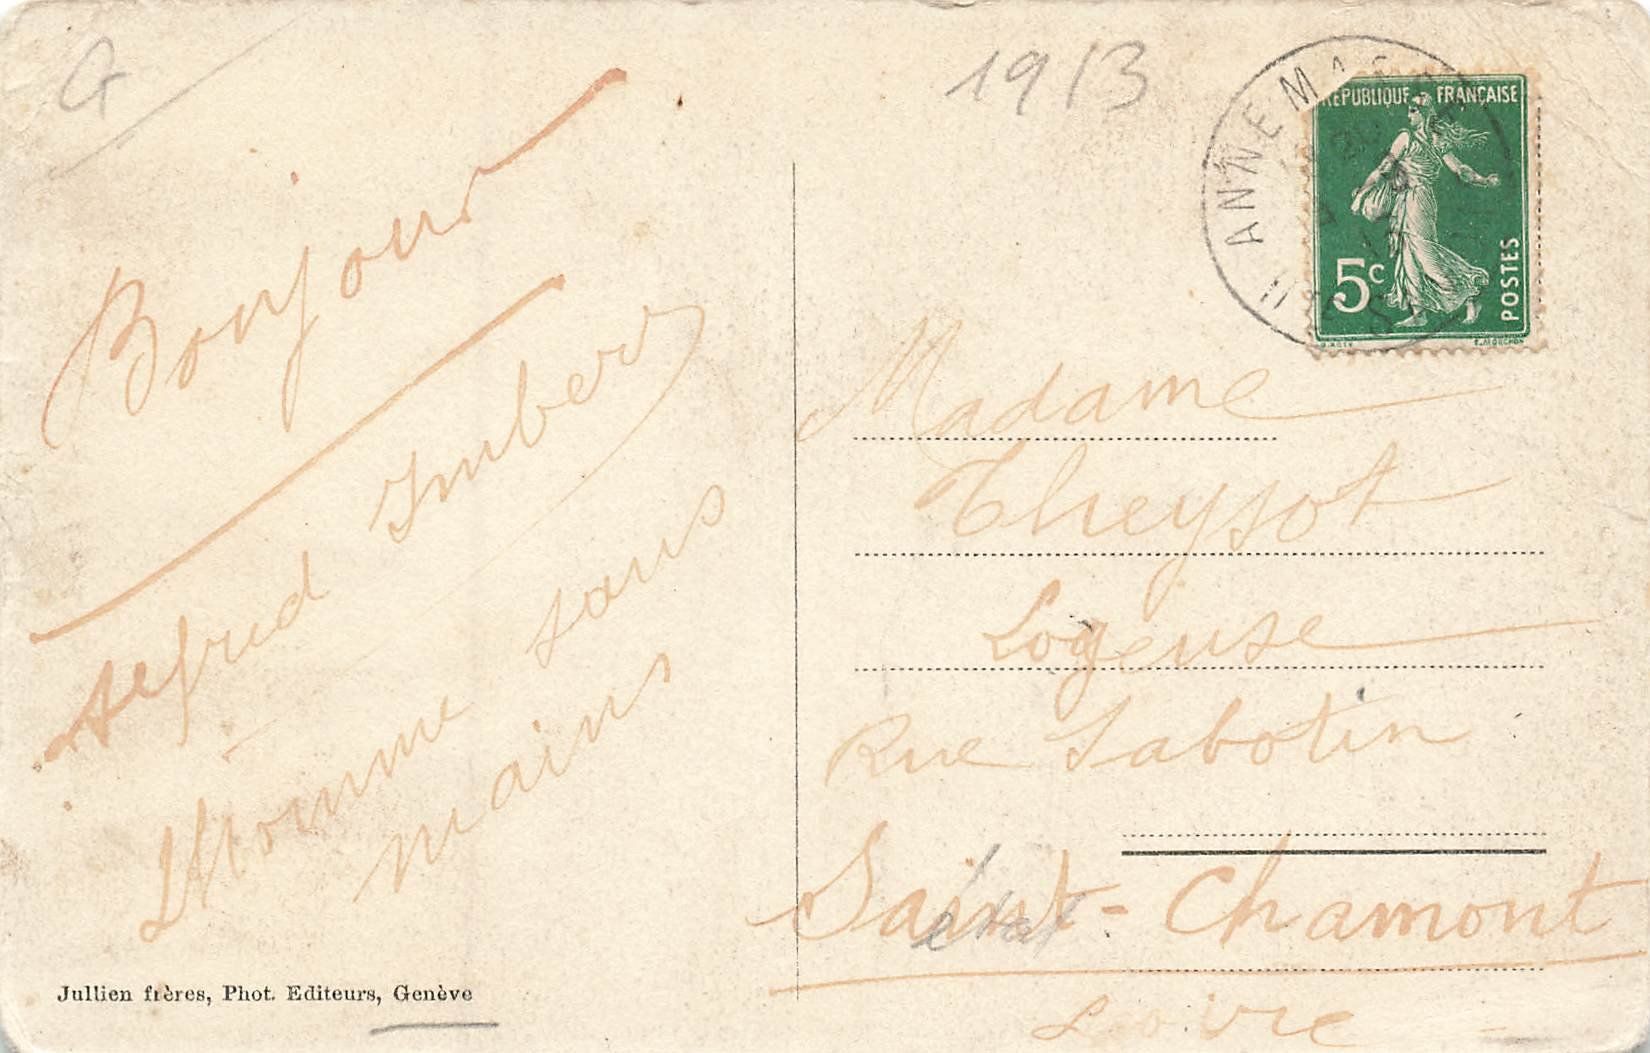 G
1913
ANNEMASSE
REPUBLIQUE FRANÇAISE
5c
POSTES
E. MOUCHON
Bonjour
Alfred Imbert
L'homme sans
mains
Madame
Theysot
Logeuse
Rue Sabotin
Saint-Chamont
état
Loire
Jullien frères, Phot. Editeurs, Genève